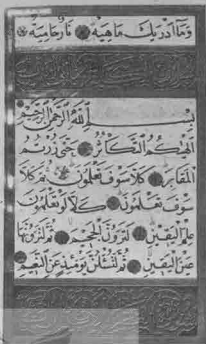 وَمَا أَدْرَىٰكَ مَا هِيَهْ نَارٌ حَامِيَةٌ
بِسْمِ اللَّهِ الرَّحْمَٰنِ الرَّحِيمِ
أَلْهَىٰكُمُ التَّكَاثُرُ حَتَّىٰ زُرْتُمُ
الْمَقَابِرَ كَلَّا سَوْفَ تَعْلَمُونَ ثُمَّ كَلَّا
سَوْفَ تَعْلَمُونَ كَلَّا لَوْ تَعْلَمُونَ
عِلْمَ الْيَقِينِ لَتَرَوُنَّ الْجَحِيمَ ثُمَّ لَتَرَوُنَّهَا
عَيْنَ الْيَقِينِ ثُمَّ لَتُسْأَلُنَّ يَوْمَئِذٍ عَنِ النَّعِيمِ